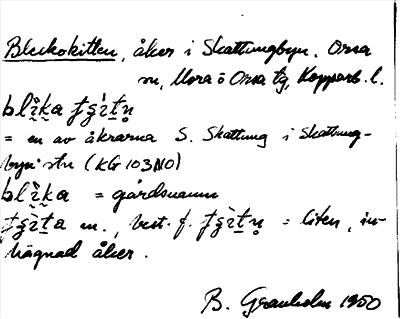 Bleckokitten, åker i Skattungbyn. Orsa
sn, Mora o Orsa tg, Kopparb. l.
= en av åkrarna S. Skattung i Skattung-
byn: stn (KG 103 NO)
= gårdsnamn
m., best. f. = liten, in-
hägnad åker.
B. Granholm 1950